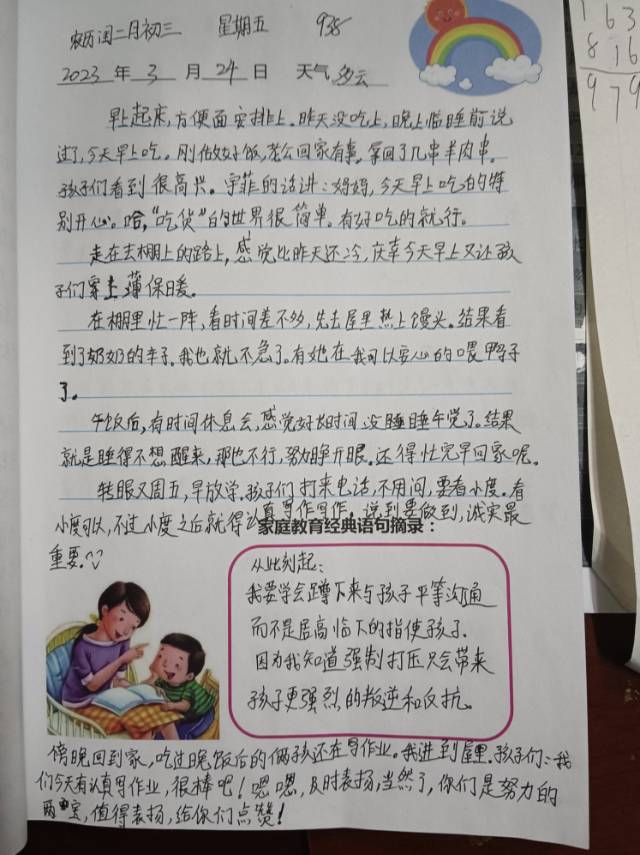 农历闰二月初三 星期五 938
2023 年 3 月 24 日 天气 多云
早上起床,方便面安排上。昨天没吃上,晚上临睡前说
过了,今天早上吃。刚做好饭,老公回家有事。拿回了几串羊肉串。
孩子们看到很高兴。宇菲的话讲:妈妈,今天早上吃的特
别开心。哈,“吃货”的世界很简单。有好吃的就行。
走在去棚上的路上,感觉比昨天还冷,庆幸今天早上又让孩
子们穿上薄保暖。
在棚里忙一阵,看时间差不多,先去屋里热上馒头。结果看
到了奶奶的车子。我也就不急了。有她在我可以安心的喂鸭子
了。
午饭后,有时间休息会,感觉好长时间没睡睡午觉了。结果
就是睡得不想醒来,那也不行,努力睁开眼。还得忙完早回家呢。
转眼又周五,早放学。孩子们打来电话,不用问,要看小度。看
小度可以,不过小度之后就得认真写作写作。说到要做到,诚实最
重要。
家庭教育经典语句摘录:
从此刻起:
我要学会蹲下来与孩子平等沟通
而不是居高临下的指使孩子。
因为我知道强制打压只会带来
孩子更强烈的叛逆和反抗。
傍晚回到家,吃过晚饭后的俩孩还在写作业。我进到屋里,孩子们:我
们今天有认真写作业,很棒吧!嗯嗯,及时表扬,当然了,你们是努力的
两宝,值得表扬,给你们点赞!
1 6 3
8 1 6
9 7 9